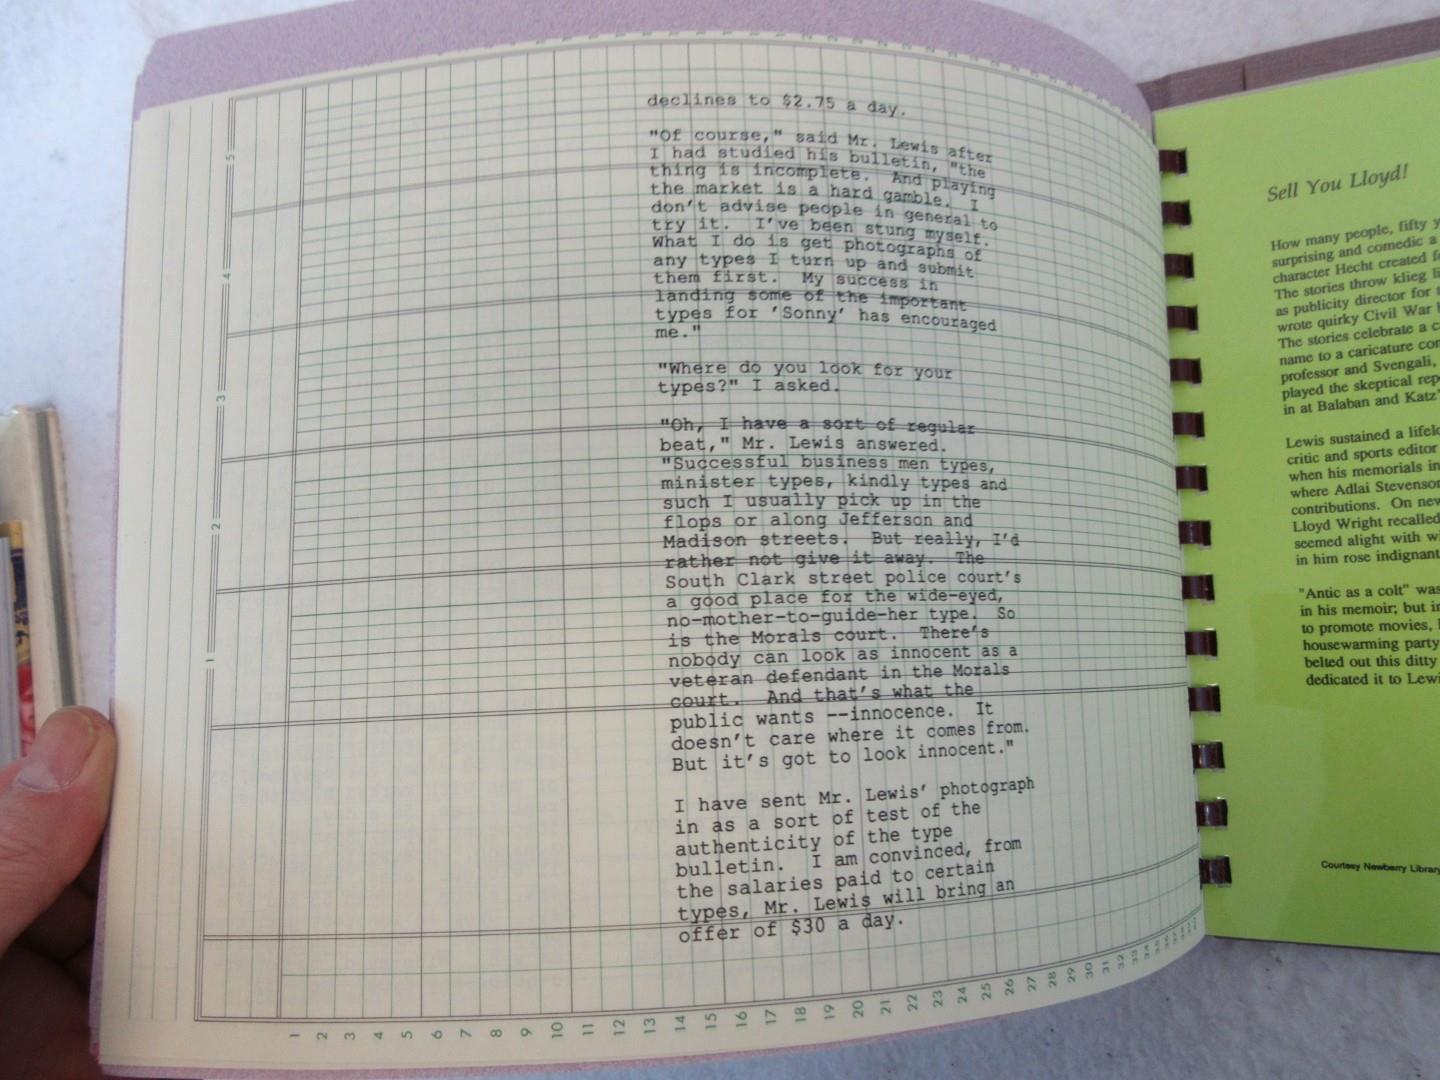 declines to $2.75 a day.
"Of course," said Mr. Lewis after
I had studied his bulletin, "the
thing is incomplete. And playing
the market is a hard gamble. I
don't advise people in general to
try it. I've been stung myself.
What I do is get photographs of
any types I turn up and submit
them first. My success in
landing some of the important
types for 'Sonny' has encouraged
me."
"Where do you look for your
types?" I asked.
"Oh, I have a sort of regular
beat," Mr. Lewis answered.
"Successful business men types,
minister types, kindly types and
such I usually pick up in the
flops or along Jefferson and
Madison streets. But really, I'd
rather not give it away. The
South Clark street police court's
a good place for the wide-eyed,
no-mother-to-guide-her type. So
is the Morals court. There's
nobody can look as innocent as a
veteran defendant in the Morals
court. And that's what the
public wants --innocence. It
doesn't care where it comes from.
But it's got to look innocent."
I have sent Mr. Lewis' photograph
in as a sort of test of the
authenticity of the type
bulletin. I am convinced, from
the salaries paid to certain
types, Mr. Lewis will bring an
offer of $30 a day.
5
4
3
2
1
1 2 3 4 5 6 7 8 9 10 11 12 13 14 15 16 17 18 19 20 21 22 23 24 25 26 27 28 29 30 31 32 33 34 35 36
Sell You Lloyd!
How many people, fifty
surprising and comedic a
character Hecht created
The stories throw klieg
as publicity director for
wrote quirky Civil War
The stories celebrate a
name to a caricature
professor and Svengali,
played the skeptical
in at Balaban and Katz'
Lewis sustained a
critic and sports editor
when his memorials in
where Adlai
contributions. On
Lloyd Wright recalled
seemed alight with
in him rose
"Antic as a colt" was
in his memoir; but
to promote movies,
housewarming party
belted out this ditty
dedicated it to
Courtesy Newberry Library